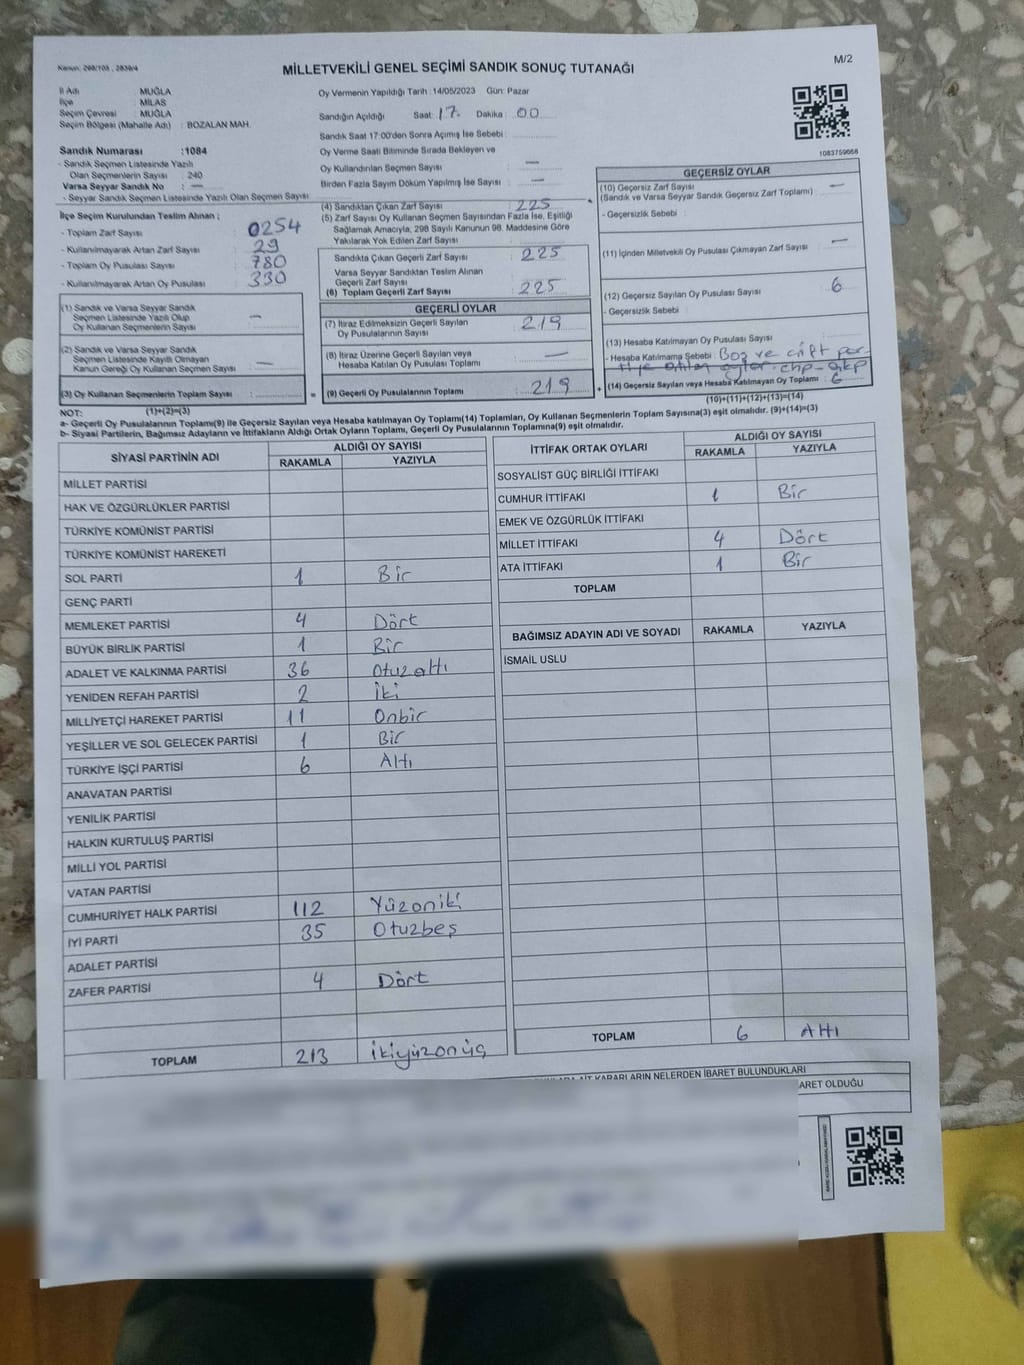 Kanun: 298/103 , 2839/4
M/2
MİLLETVEKİLİ GENEL SEÇİMİ SANDIK SONUÇ TUTANAĞI
İl Adı : MUĞLA
İlçe : MİLAS
Seçim Çevresi : MUĞLA
Seçim Bölgesi (Mahalle Adı) : BOZALAN MAH.
Sandık Numarası :1084
- Sandık Seçmen Listesinde Yazılı
Olan Seçmenlerin Sayısı : 240
Varsa Seyyar Sandık No : —
- Seyyar Sandık Seçmen Listesinde Yazılı Olan Seçmen Sayısı
Oy Vermenin Yapıldığı Tarih :14/05/2023 Gün: Pazar
Sandığın Açıldığı Saat: 17. Dakika : 00
Sandık Saat 17:00'den Sonra Açımış İse Sebebi :
Oy Verme Saati Bitiminde Sırada Bekleyen ve
Oy Kullandırılan Seçmen Sayısı : —
Birden Fazla Sayım Döküm Yapılmış İse Sayısı : —
1083759668
İlçe Seçim Kurulundan Teslim Alınan ;
- Toplam Zarf Sayısı : 0254
- Kullanılmayarak Artan Zarf Sayısı : 29
- Toplam Oy Pusulası Sayısı : 780
- Kullanılmayarak Artan Oy Pusulası : 330
(1) Sandık ve Varsa Seyyar Sandık
Seçmen Listesinde Yazılı Olup
Oy Kullanan Seçmenlerin Sayısı : —
(2) Sandık ve Varsa Seyyar Sandık
Seçmen Listesinde Kayıtlı Olmayan
Kanun Gereği Oy Kullanan Seçmen Sayısı : —
(3) Oy Kullanan Seçmenlerin Toplam Sayısı :
(4) Sandıktan Çıkan Zarf Sayısı : 225
(5) Zarf Sayısı Oy Kullanan Seçmen Sayısından Fazla İse, Eşitliği
Sağlamak Amacıyla, 298 Sayılı Kanunun 98. Maddesine Göre
Yakılarak Yok Edilen Zarf Sayısı :
Sandıkta Çıkan Geçerli Zarf Sayısı : 225
Varsa Seyyar Sandıktan Teslim Alınan
Geçerli Zarf Sayısı :
(6) Toplam Geçerli Zarf Sayısı : 225
GEÇERLİ OYLAR
(7) İtiraz Edilmeksizin Geçerli Sayılan
Oy Pusulalarının Sayısı : 219
(8) İtiraz Üzerine Geçerli Sayılan veya
Hesaba Katılan Oy Pusulası Toplamı : —
(9) Geçerli Oy Pusulalarının Toplamı : 219
GEÇERSİZ OYLAR
(10) Geçersiz Zarf Sayısı : —
(Sandık ve Varsa Seyyar Sandık Geçersiz Zarf Toplamı)
- Geçersizlik Sebebi :
(11) İçinden Milletvekili Oy Pusulası Çıkmayan Zarf Sayısı : —
(12) Geçersiz Sayılan Oy Pusulası Sayısı : 6
- Geçersizlik Sebebi :
(13) Hesaba Katılmayan Oy Pusulası Sayısı :
- Hesaba Katılmama Sebebi : Boş ve çift par-
tiye atılan oylar. chp - akp
(14) Geçersiz Sayılan veya Hesaba Katılmayan Oy Toplamı : 6
(10)+(11)+(12)+(13)=(14)
NOT: (1)+(2)=(3)
a- Geçerli Oy Pusulalarının Toplamı(9) ile Geçersiz Sayılan veya Hesaba katılmayan Oy Toplamı(14) Toplamları, Oy Kullanan Seçmenlerin Toplam Sayısına(3) eşit olmalıdır. (9)+(14)=(3)
b- Siyasi Partilerin, Bağımsız Adayların ve İttifakların Aldığı Ortak Oyların Toplamı, Geçerli Oy Pusulalarının Toplamına(9) eşit olmalıdır.
SİYASİ PARTİNİN ADI ALDIĞI OY SAYISI
RAKAMLA YAZIYLA
MİLLET PARTİSİ
HAK VE ÖZGÜRLÜKLER PARTİSİ
TÜRKİYE KOMÜNİST PARTİSİ
TÜRKİYE KOMÜNİST HAREKETİ
SOL PARTİ 1 Bir
GENÇ PARTİ
MEMLEKET PARTİSİ 4 Dört
BÜYÜK BİRLİK PARTİSİ 1 Bir
ADALET VE KALKINMA PARTİSİ 36 Otuzaltı
YENİDEN REFAH PARTİSİ 2 İki
MİLLİYETÇİ HAREKET PARTİSİ 11 Onbir
YEŞİLLER VE SOL GELECEK PARTİSİ 1 Bir
TÜRKİYE İŞÇİ PARTİSİ 6 Altı
ANAVATAN PARTİSİ
YENİLİK PARTİSİ
HALKIN KURTULUŞ PARTİSİ
MİLLİ YOL PARTİSİ
VATAN PARTİSİ
CUMHURİYET HALK PARTİSİ 112 Yüzoniki
İYİ PARTİ 35 Otuzbeş
ADALET PARTİSİ
ZAFER PARTİSİ 4 Dört
TOPLAM 213 İkiyüzonüç
İTTİFAK ORTAK OYLARI ALDIĞI OY SAYISI
RAKAMLA YAZIYLA
SOSYALİST GÜÇ BİRLİĞİ İTTİFAKI
CUMHUR İTTİFAKI 1 Bir
EMEK VE ÖZGÜRLÜK İTTİFAKI
MİLLET İTTİFAKI 4 Dört
ATA İTTİFAKI 1 Bir
TOPLAM
BAĞIMSIZ ADAYIN ADI VE SOYADI RAKAMLA YAZIYLA
İSMAİL USLU
TOPLAM 6 Altı
KARARLARIN NELERDEN İBARET BULUNDUKLARI
OLDUĞU